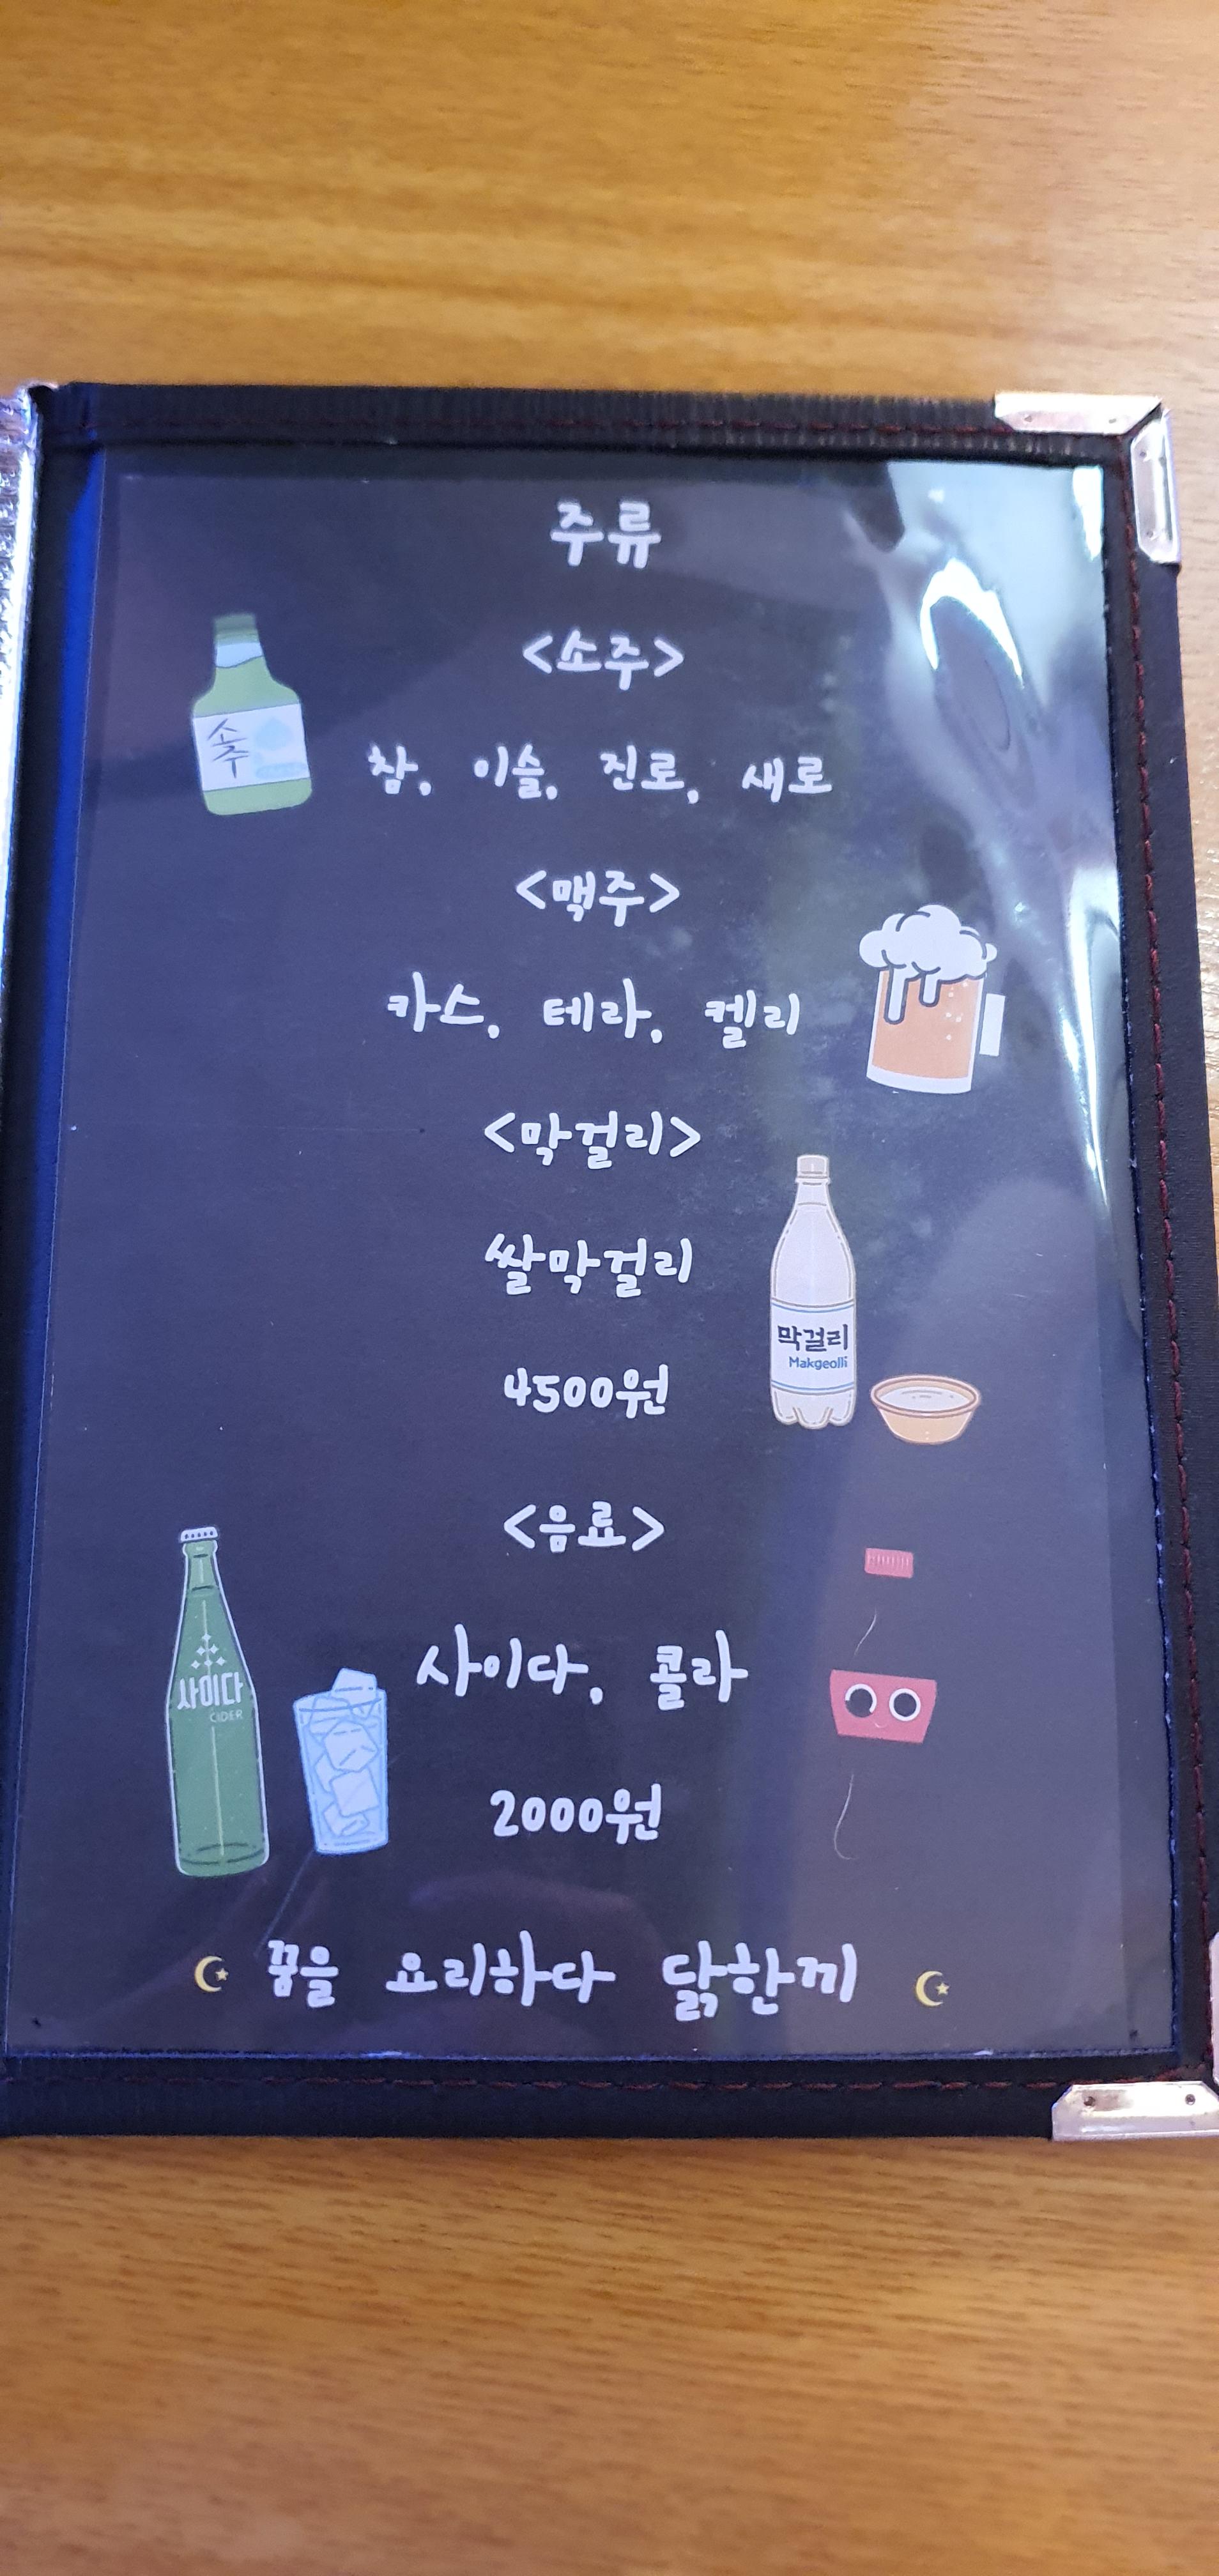 주류
<소주>
소주
참, 이슬, 진로, 새로
<맥주>
카스, 테라, 켈리
<막걸리>
쌀막걸리
막걸리
Makgeolli
4500원
<음료>
사이다
CIDER
사이다, 콜라
2000원
꿈을 요리하다 닭한끼